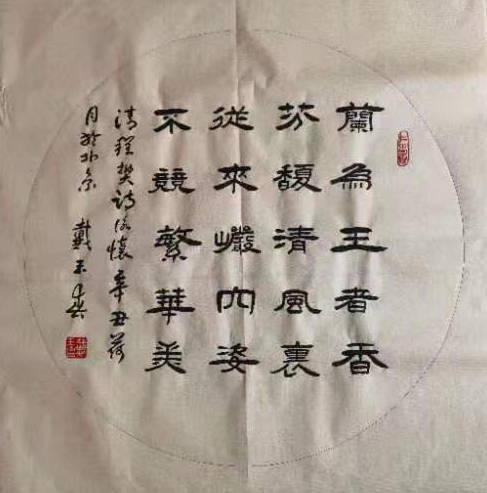 蘭為王者香
芬馥清風裏
從來巖穴姿
不競繁華美
清程樊詩詠懷辛丑荷
月於北京戴